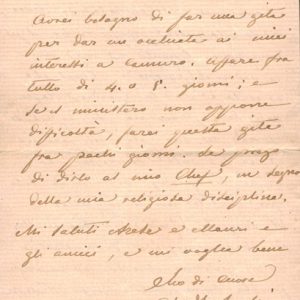 Avrei bisogno di far una gita
per dar un occhiata ai miei
interessi a Cannero. Affare fra
tutto di 4. o 5. giorni; e
se il ministero non oppone
difficoltà, farei questa gita
fra pochi giorni. La prego
di dirlo al mio Chef, in segno
della mia religiosa disciplina.
Mi saluti Arese e Mauri e
gli amici, e mi voglia bene
Suo di cuore